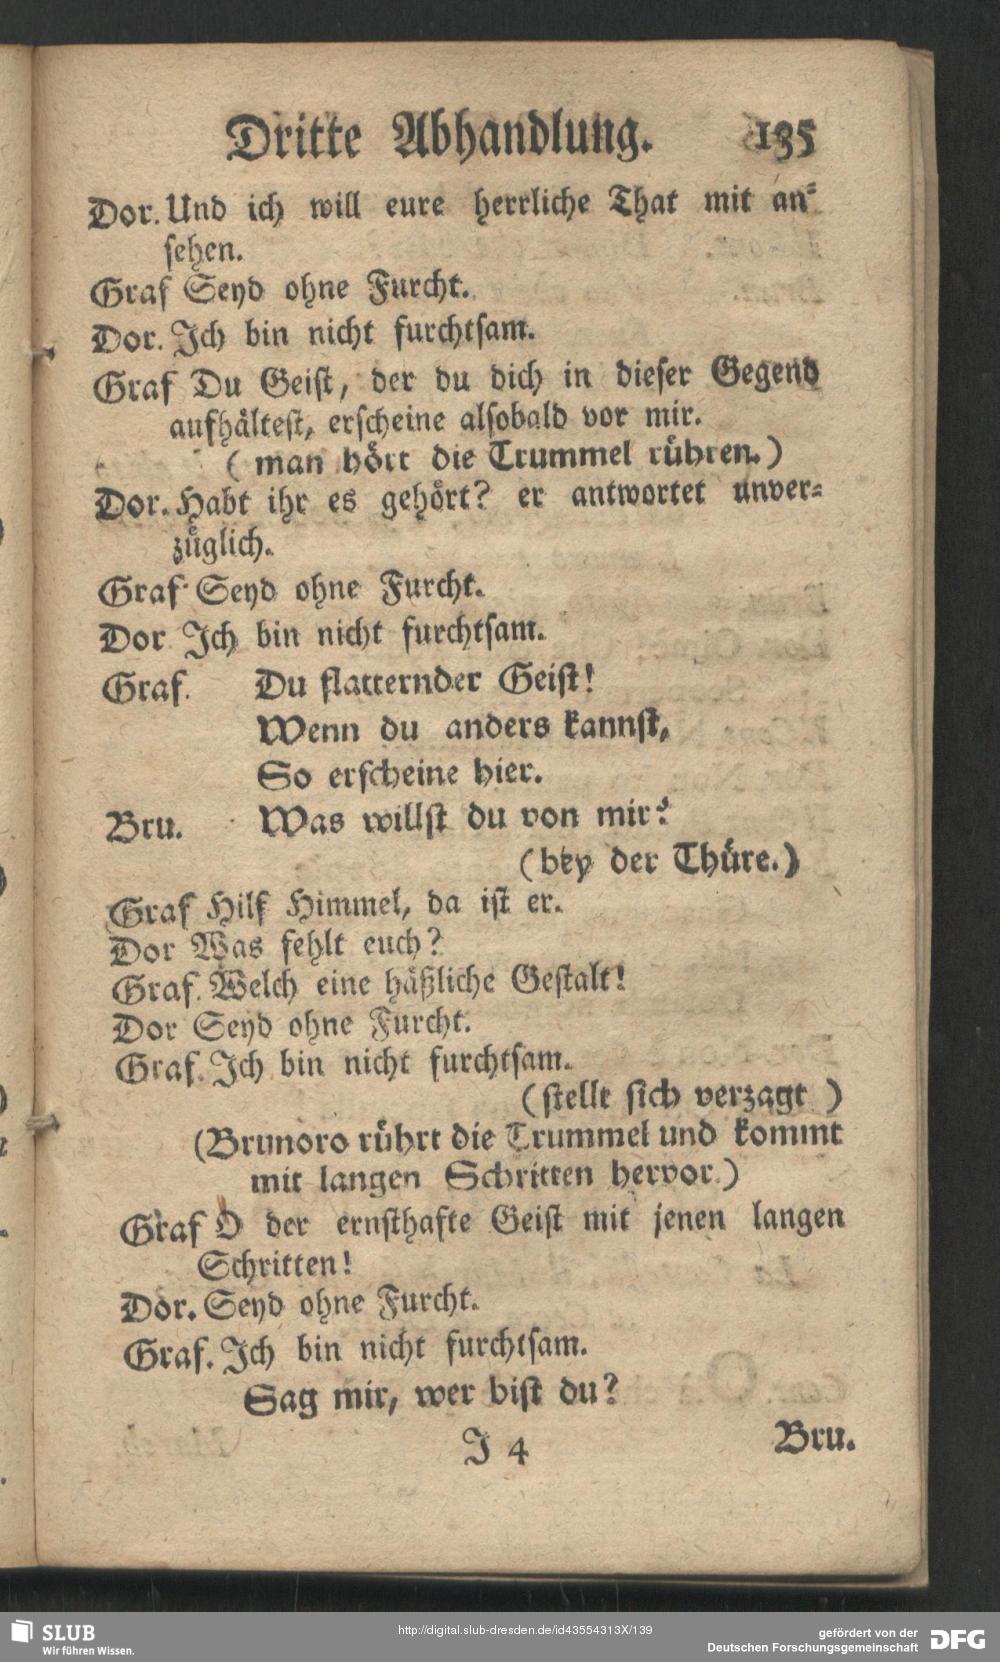 Dritte Abhandlung. 135
Dor. Und ich will eure herrliche That mit an-
sehen.
Graf Seyd ohne Furcht.
Dor. Ich bin nicht furchtsam.
Graf Du Geist, der du dich in dieser Gegend
aufhältest, erscheine alsobald vor mir.
( man hört die Trummel rühren.)
Dor. Habt ihr es gehört? er antwortet unver-
züglich.
Graf Seyd ohne Furcht.
Dor Ich bin nicht furchtsam.
Graf. Du flatternder Geist!
Wenn du anders kannst,
So erscheine hier.
Bru. Was willst du von mir?
(bey der Thüre.)
Graf Hilf Himmel, da ist er.
Dor Was fehlt euch?
Graf. Welch eine häßliche Gestalt!
Dor Seyd ohne Furcht.
Graf. Ich bin nicht furchtsam.
(stellt sich verzagt )
(Brunoro rührt die Trummel und kommt
mit langen Schritten hervor.)
Graf O der ernsthafte Geist mit jenen langen
Schritten!
Dor. Seyd ohne Furcht.
Graf. Ich bin nicht furchtsam.
Sag mir, wer bist du?
J 4 Bru.
SLUB
Wir führen Wissen.
http://digital.slub-dresden.de/id43554313X/139
gefördert von der
Deutschen Forschungsgemeinschaft
DFG